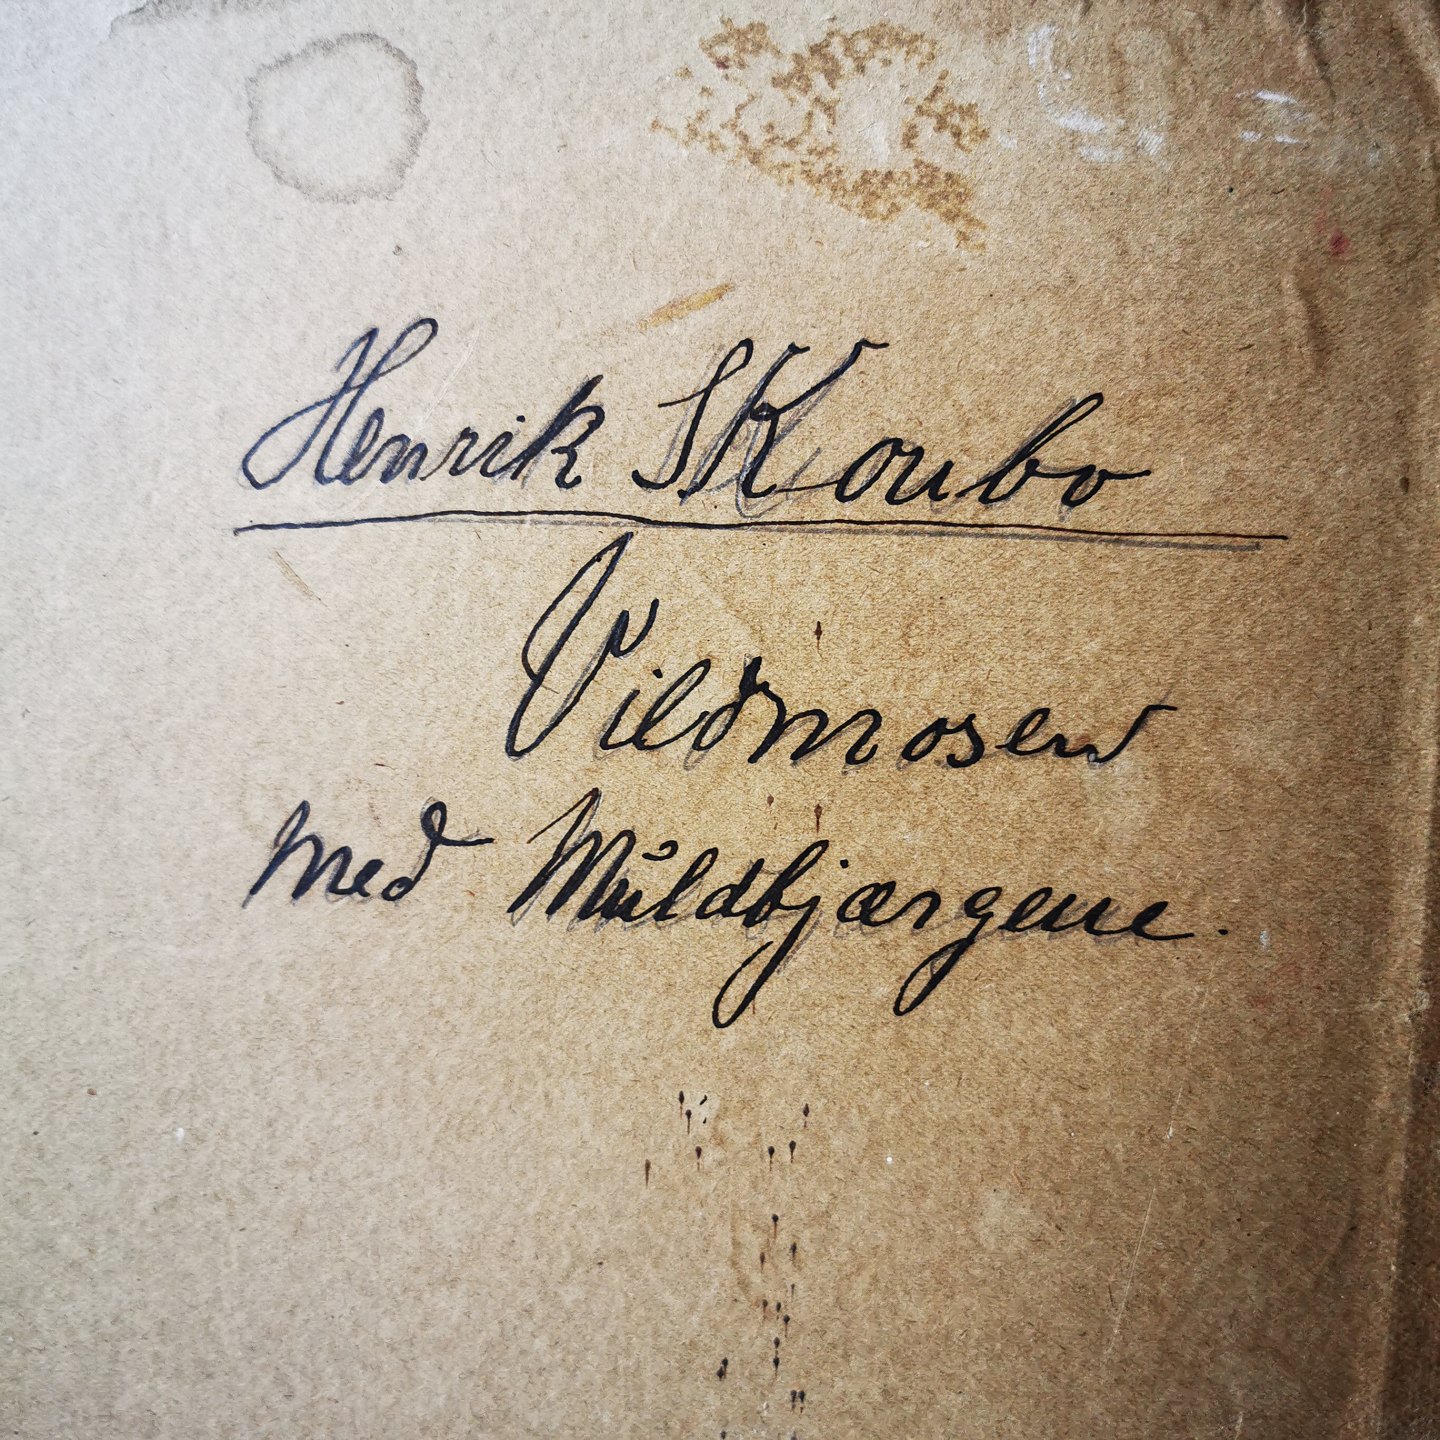 Henrik SKoubo
Vildmosen
med Muldbjærgene.